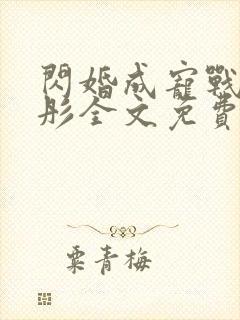 閃婚成寵戰
彤全文免費
粟青梅